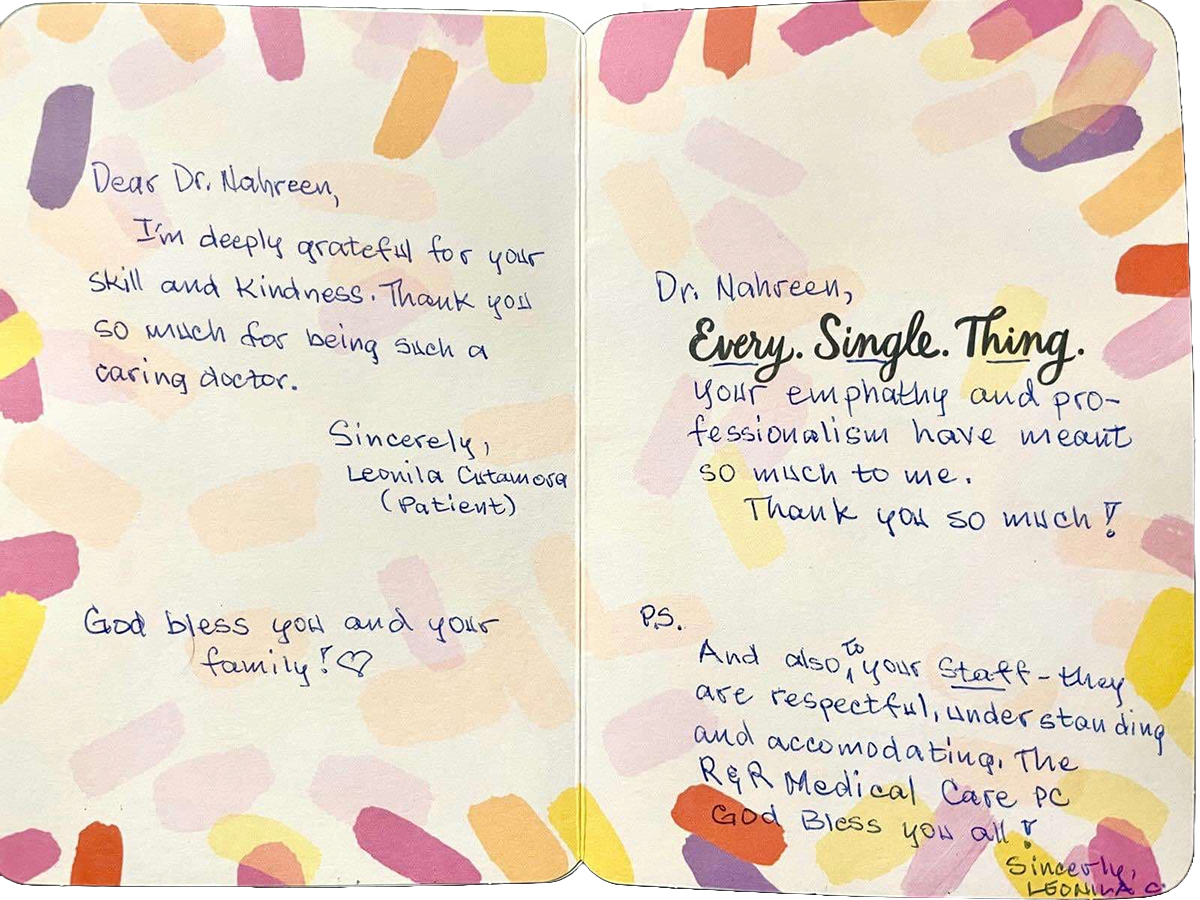 Dear Dr. Nahreen,
I'm deeply grateful for your
skill and kindness. Thank you
so much for being such a
caring doctor.
Sincerely,
Leonila Cutamora
(Patient)
God bless you and your
family! ♡
Dr. Nahreen,
Every. Single. Thing.
Your emphathy and pro-
fessionalism have meant
so much to me.
Thank you so much!
P.S.
And also, to your Staff - they
are respectful, understanding
and accomodating. The
R&R Medical Care PC
God Bless you all!
Sincerly,
LEONILA C.